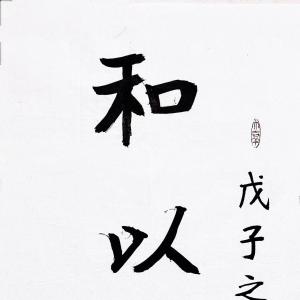 戊子之
和以